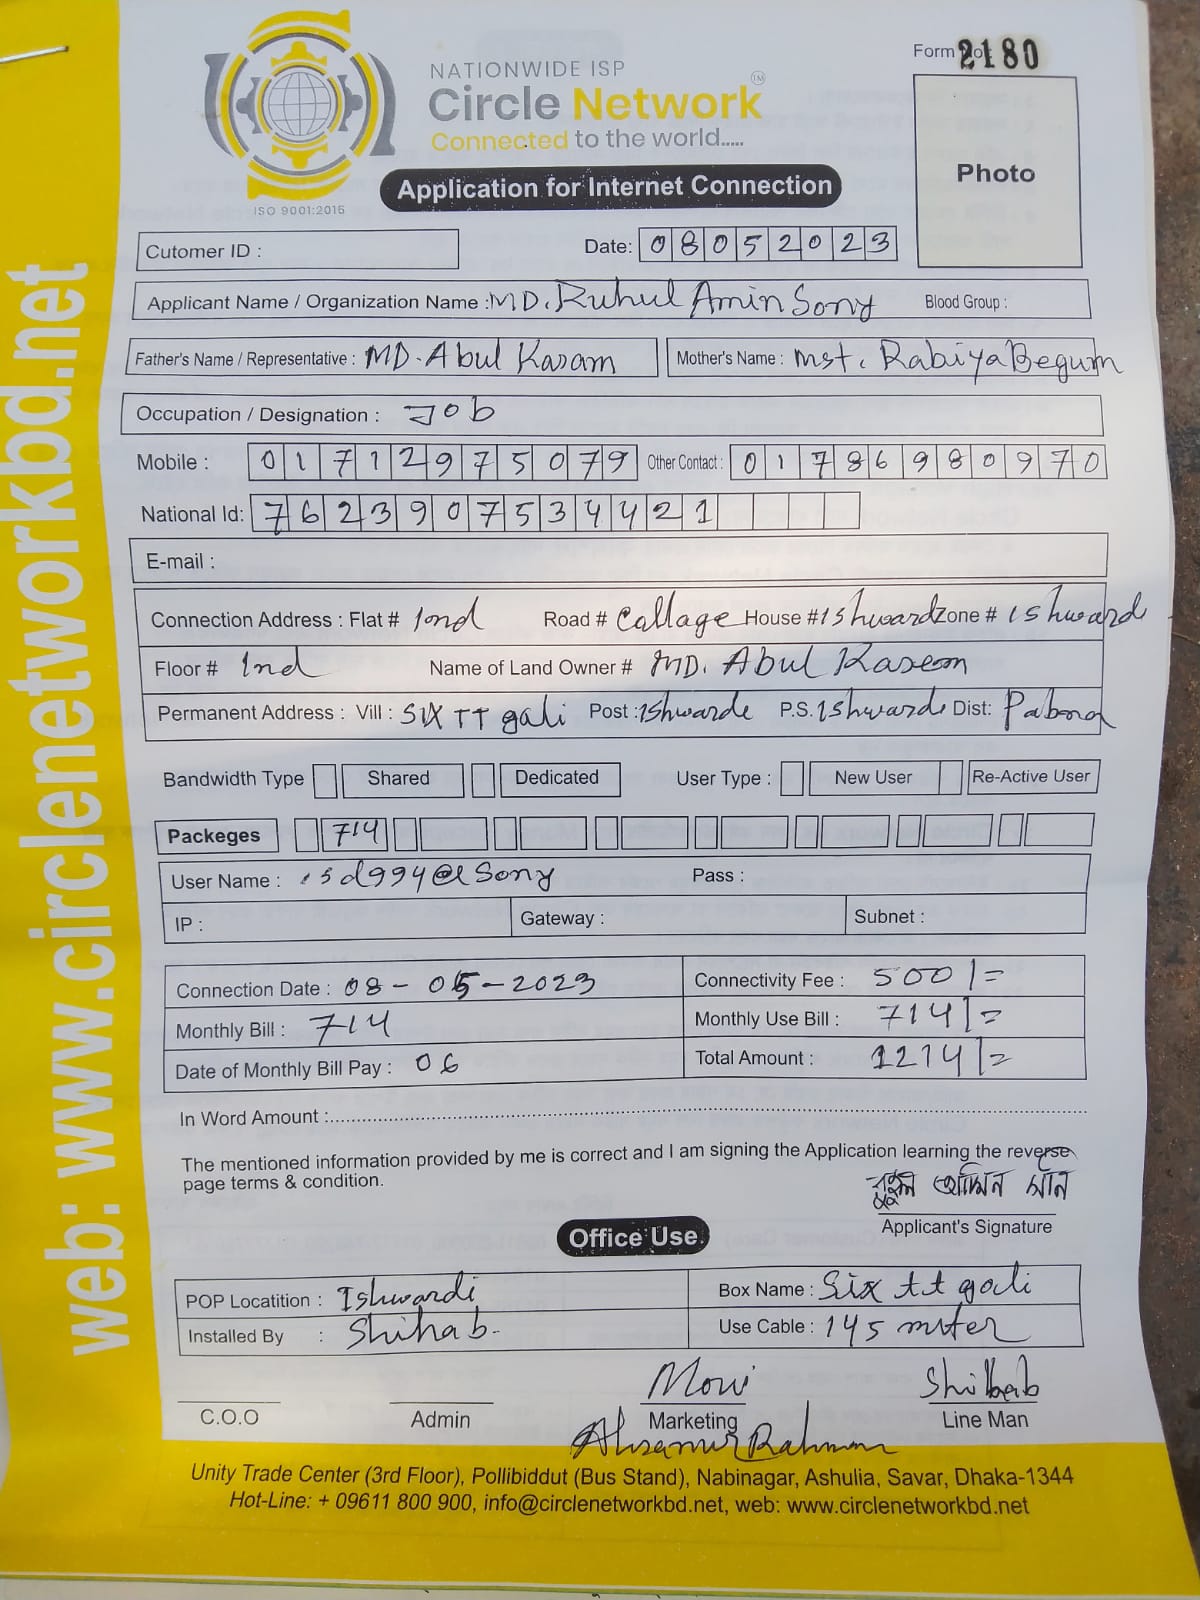 Form No: 2180
NATIONWIDE ISP
Circle Network TM
Connected to the world.....
ISO 9001:2015
Application for Internet Connection
Photo
Cutomer ID :
Date: 08052023
Applicant Name / Organization Name : MD. Ruhul Amin Sony Blood Group :
Father's Name / Representative : MD. Abul Kasam Mother's Name : Mst. Rabiya Begum
Occupation / Designation : Job
Mobile : 01712975079 Other Contact : 01786980970
National Id: 7623907534421
E-mail :
Connection Address : Flat # 1nd Road # Callage House # Ishwardi Zone # Ishwardi
Floor # 1nd Name of Land Owner # MD. Abul Kasem
Permanent Address : Vill : SIX TT gali Post : Ishwarde P.S. Ishwarde Dist: Pabna
Bandwidth Type Shared Dedicated User Type : New User Re-Active User
Packeges 714
User Name : isd994@Sony Pass :
IP : Gateway : Subnet :
Connection Date : 08 - 05 - 2023 Connectivity Fee : 500/=
Monthly Bill : 714 Monthly Use Bill : 714/=
Date of Monthly Bill Pay : 06 Total Amount : 1214/=
In Word Amount :
The mentioned information provided by me is correct and I am signing the Application learning the reverse
page terms & condition.
আমিন সনি
Applicant's Signature
Office Use
POP Locatition : Ishwardi Box Name : Six tt gali
Installed By : Shihab Use Cable : 145 miter
Shihab
C.O.O Admin Marketing Line Man
Rahman
Unity Trade Center (3rd Floor), Pollibiddut (Bus Stand), Nabinagar, Ashulia, Savar, Dhaka-1344
Hot-Line: + 09611 800 900, info@circlenetworkbd.net, web: www.circlenetworkbd.net
web: www.circlenetworkbd.net